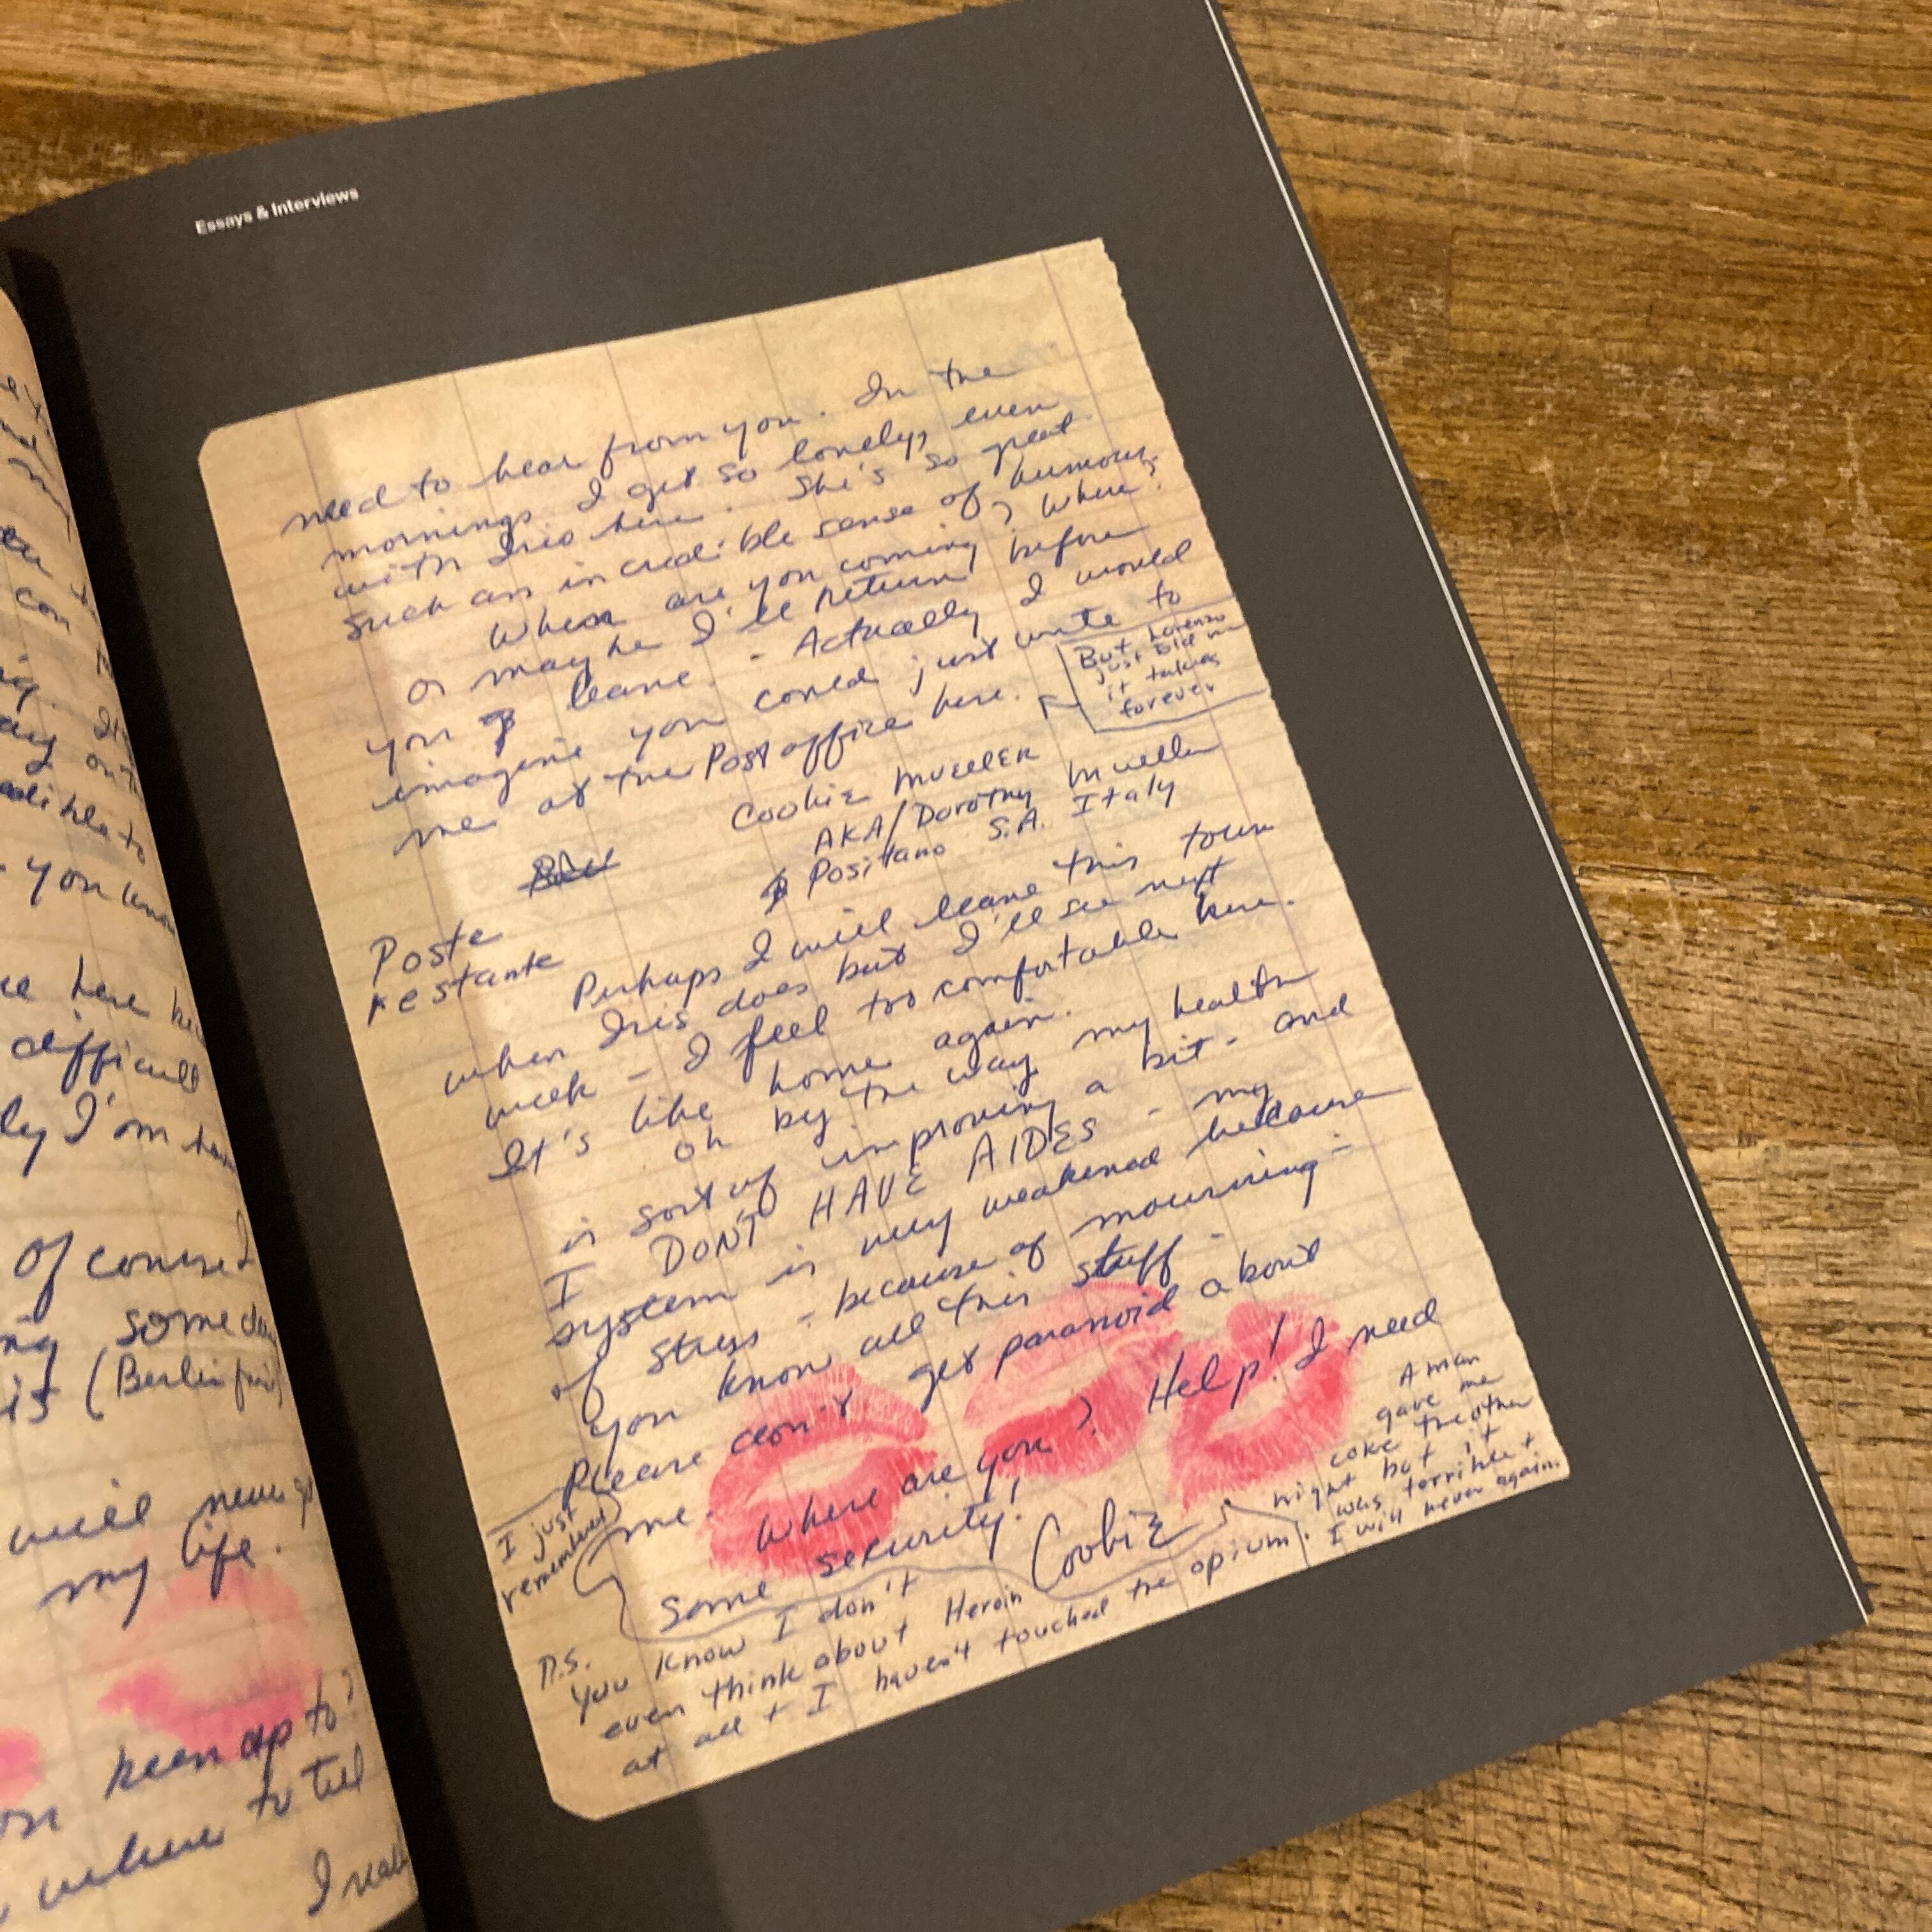 Essays & Interviews
need to hear from you. In the
mornings I get so lonely, even
with Iris here. She's so great.
Such an incredible sense of humour.
When are you coming? Where?
or maybe I'll return before
you leave. - Actually I would
imagine you could just write to
me at the Post office here.
But Lorenzo
just told me
it takes
forever
Cookie Mueller
AKA/Dorothy Mueller
Positano S.A. Italy
Poste
restante
Perhaps I will leave this town
when Iris does but I'll see next
week - I feel too comfortable here.
It's like home again.
Oh by the way my health
is sort of improving a bit - and
I DON'T HAVE AIDES - my
system is very weakened because
of stress - because of mourning -
you know all this stuff -
Please don't get paranoid about
me. Where are you? Help! I need
some security!
Cookie
I just
remembered
P.S.
You know I don't
even think about Heroin
at all + I haven't touched the opium.
A man
gave me
coke the other
night but it
was terrible +
I will never again.
con
difficult
ly I'm
Of course I
some day
is (Berlin
will never
my life.
keep up to?
where to tell